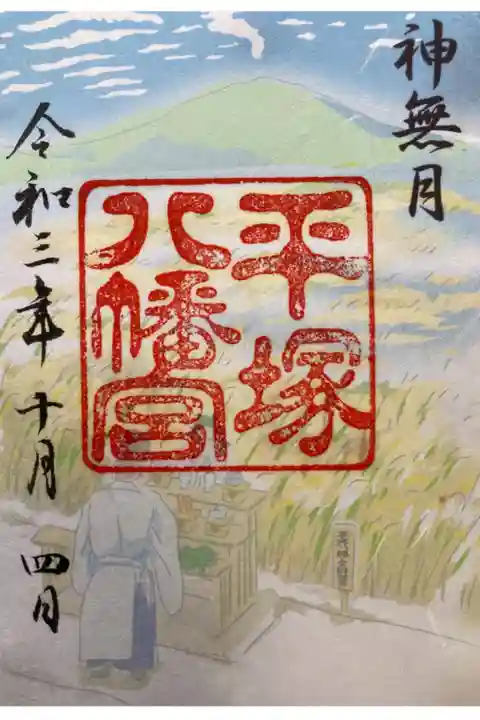 神無月
平塚
八幡宮
令和三年十月 四日